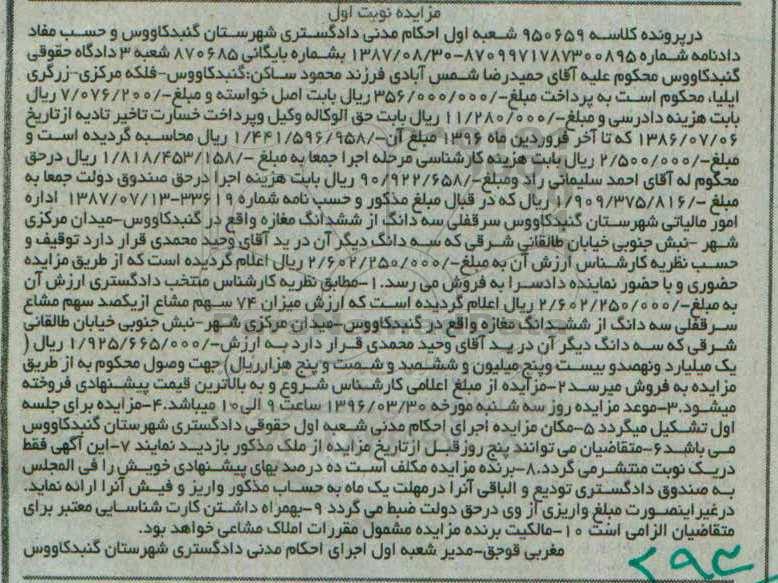 مزایده نوبت اول
درپرونده کلاسه ۹۵۰۶۵۹ شعبه اول احکام مدنی دادگستری شهرستان گنبدکاووس و حسب مفاد
دادنامه شماره ۸۷۰۹۹۷۱۷۸۷۳۰۰۸۹۵-۱۳۸۷/۰۸/۳۰ بشماره بایگانی ۸۷۰۶۸۵ شعبه ۳ دادگاه حقوقی
گنبدکاووس محکوم علیه آقای حمیدرضا شمس آبادی فرزند محمود ساکن:گنبدکاووس-فلکه مرکزی-زرگری
ایلیا، محکوم است به پرداخت مبلغ-/۳۵۶/۰۰۰/۰۰۰ ریال بابت اصل خواسته و مبلغ-/۷/۰۷۶/۲۰۰ ریال
بابت هزینه دادرسی و مبلغ-/۱۱/۲۸۰/۰۰۰ ریال بابت حق الوکاله وکیل وپرداخت خسارت تاخیر تادیه ازتاریخ
۱۳۸۶/۰۷/۰۶ که تا آخر فروردین ماه ۱۳۹۶ مبلغ آن-/۱/۴۴۱/۵۹۶/۹۵۸ ریال محاسبه گردیده است و
مبلغ-/۲/۵۰۰/۰۰۰ ریال بابت هزینه کارشناسی مرحله اجرا جمعا به مبلغ -/۱/۸۱۸/۴۵۳/۱۵۸ ریال درحق
محکوم له آقای احمد سلیمانی راد ومبلغ-/۹۰/۹۲۲/۶۵۸ ریال بابت هزینه اجرا درحق صندوق دولت جمعا به
مبلغ -/۱/۹۰۹/۳۷۵/۸۱۶ ریال که در قبال مبلغ مذکور و حسب نامه شماره ۳۳۶۱۹-۱۳۸۷/۰۷/۱۳ اداره
امور مالیاتی شهرستان گنبدکاووس سرقفلی سه دانگ از ششدانگ مغازه واقع در گنبدکاووس-میدان مرکزی
شهر -نبش جنوبی خیابان طالقانی شرقی که سه دانگ دیگر آن در ید آقای وحید محمدی قرار دارد توقیف و
حسب نظریه کارشناس ارزش آن به مبلغ-/۲/۶۰۲/۲۵۰/۰۰۰ ریال اعلام گردیده است که از طریق مزایده
حضوری و با حضور نماینده دادسرا به فروش می رسد.۱-مطابق نظریه کارشناس منتخب دادگستری ارزش آن
به مبلغ-/۲/۶۰۲/۲۵۰/۰۰۰ ریال اعلام گردیده است که ارزش میزان ۷۴ سهم مشاع ازیکصد سهم مشاع
سرقفلی سه دانگ از ششدانگ مغازه واقع در گنبدکاووس-میدان مرکزی شهر-نبش جنوبی خیابان طالقانی
شرقی که سه دانگ دیگر آن در ید آقای وحید محمدی قرار دارد به ارزش-/۱/۹۲۵/۶۶۵/۰۰۰ ریال (
یک میلیارد ونهصدو بیست وپنج میلیون و ششصد و شصت و پنج هزارریال) جهت وصول محکوم به از طریق
مزایده به فروش میرسد۲-مزایده از مبلغ اعلامی کارشناس شروع و به بالاترین قیمت پیشنهادی فروخته
میشود.۳-موعد مزایده روز سه شنبه مورخه ۱۳۹۶/۰۳/۳۰ ساعت ۹ الی۱۰ میباشد.۴-مزایده برای جلسه
اول تشکیل میگردد ۵-مکان مزایده اجرای احکام مدنی شعبه اول حقوقی دادگستری شهرستان گنبدکاووس
می باشد۶-متقاضیان می توانند پنج روزقبل ازتاریخ مزایده از ملک مذکور بازدید نمایند ۷-این آگهی فقط
دریک نوبت منتشرمی گردد.۸-برنده مزایده مکلف است ده درصد بهای پیشنهادی خویش را فی المجلس
به صندوق دادگستری تودیع و الباقی آنرا درمهلت یک ماه به حساب مذکور واریز و فیش آنرا ارائه نماید.
درغیراینصورت مبلغ واریزی از وی درحق دولت ضبط می گردد ۹-بهمراه داشتن کارت شناسایی معتبر برای
متقاضیان الزامی است ۱۰-مالکیت برنده مزایده مشمول مقررات املاک مشاعی خواهد بود.
مغربی قوجق-مدیر شعبه اول اجرای احکام مدنی دادگستری شهرستان گنبدکاووس